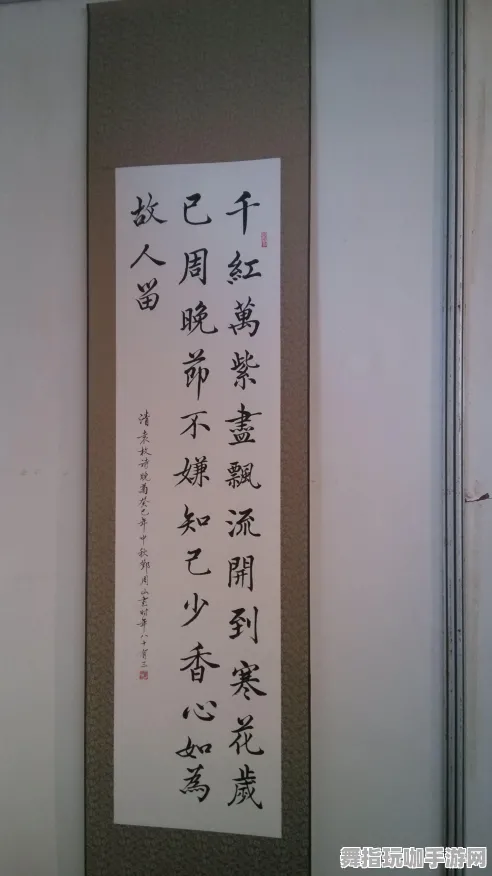 千紅萬紫盡飄流開到寒花歲
已周晚節不嫌知己少香心如為
故人留
清袁枚詩晚菊癸巳年中秋鄧周山書時年八十有三
舞指玩咖手游网